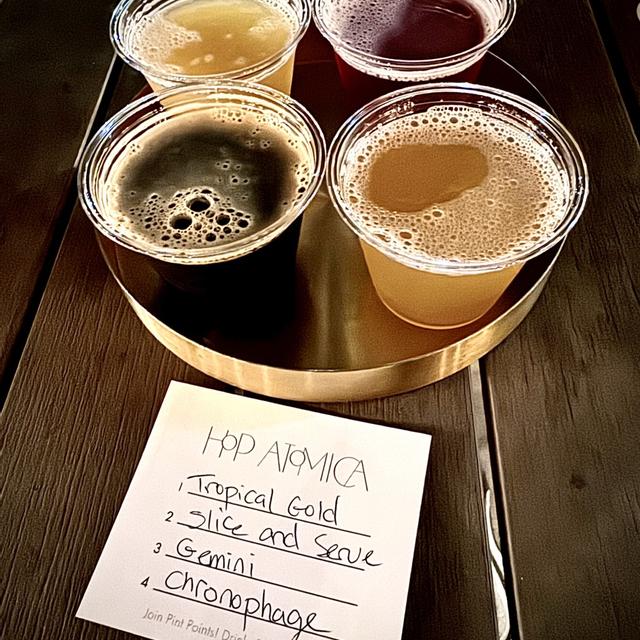 HOP ATOMICA
1 Tropical Gold
2 Slice and Serve
3 Gemini
4 Chronophage
Join Pint Points!